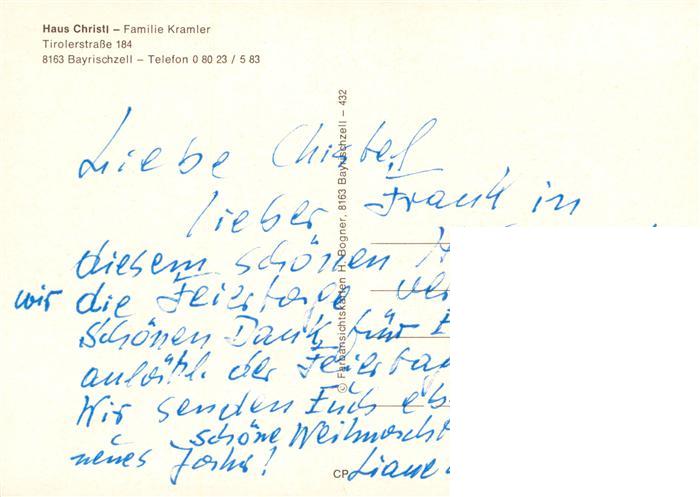 Haus Christl – Familie Kramler
Tirolerstraße 184
8163 Bayrischzell – Telefon 0 80 23 / 5 83
© Farbansichtskarten H. Bogner, 8163 Bayrischzell – 432
Liebe
lieber Frank in
diesem schönen
wir die Feiertage
schönen Dank für
anläßl. der
Wir senden Euch
schöne
neues Jahr!
CP Liane